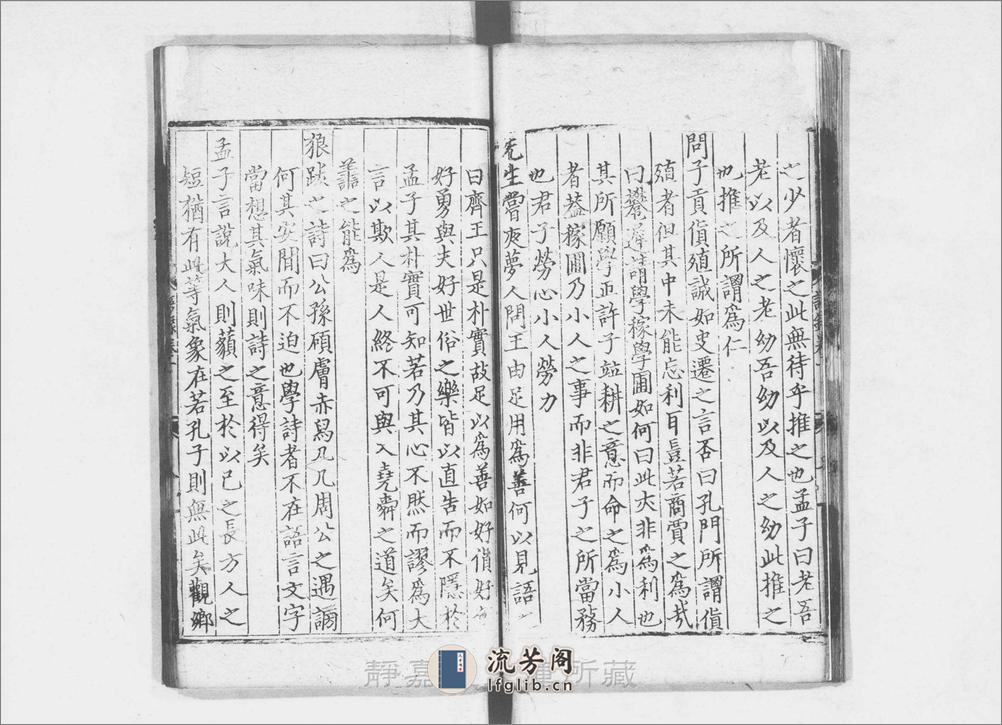 之少者懷之此無待乎推之也孟子曰老吾
老以及人之老幼吾幼以及人之幼此推之
也推之所謂爲仁
問子貢貨殖誠如史遷之言否曰孔門所謂貨
殖者但其中未能忘利耳豈若商賈之爲哉
曰樊遲請學稼學圃如何曰此亦非爲利也
其所願學正許子並耕之意而命之爲小人
者葢稼圃乃小人之事而非君子之所當務
也君子勞心小人勞力
先生嘗夜夢人問王由足用爲善何以見語之
曰齊王只是朴實故足以爲善如好貨好色
好勇與夫好世俗之樂皆以直告而不隱於
孟子其朴實可知若乃其心不然而謬爲大
言以欺人是人終不可與入堯舜之道矣何
善之能爲
狼跋之詩曰公孫碩膚赤舄几几周公之遇謗
何其安閒而不迫也學詩者不在語言文字
當想其氣味則詩之意得矣
孟子言說大人則藐之至於以己之長方人之
短猶有此等氣象在若孔子則無此矣觀鄉
流芳阁
lfglib.cn
靜嘉 所藏